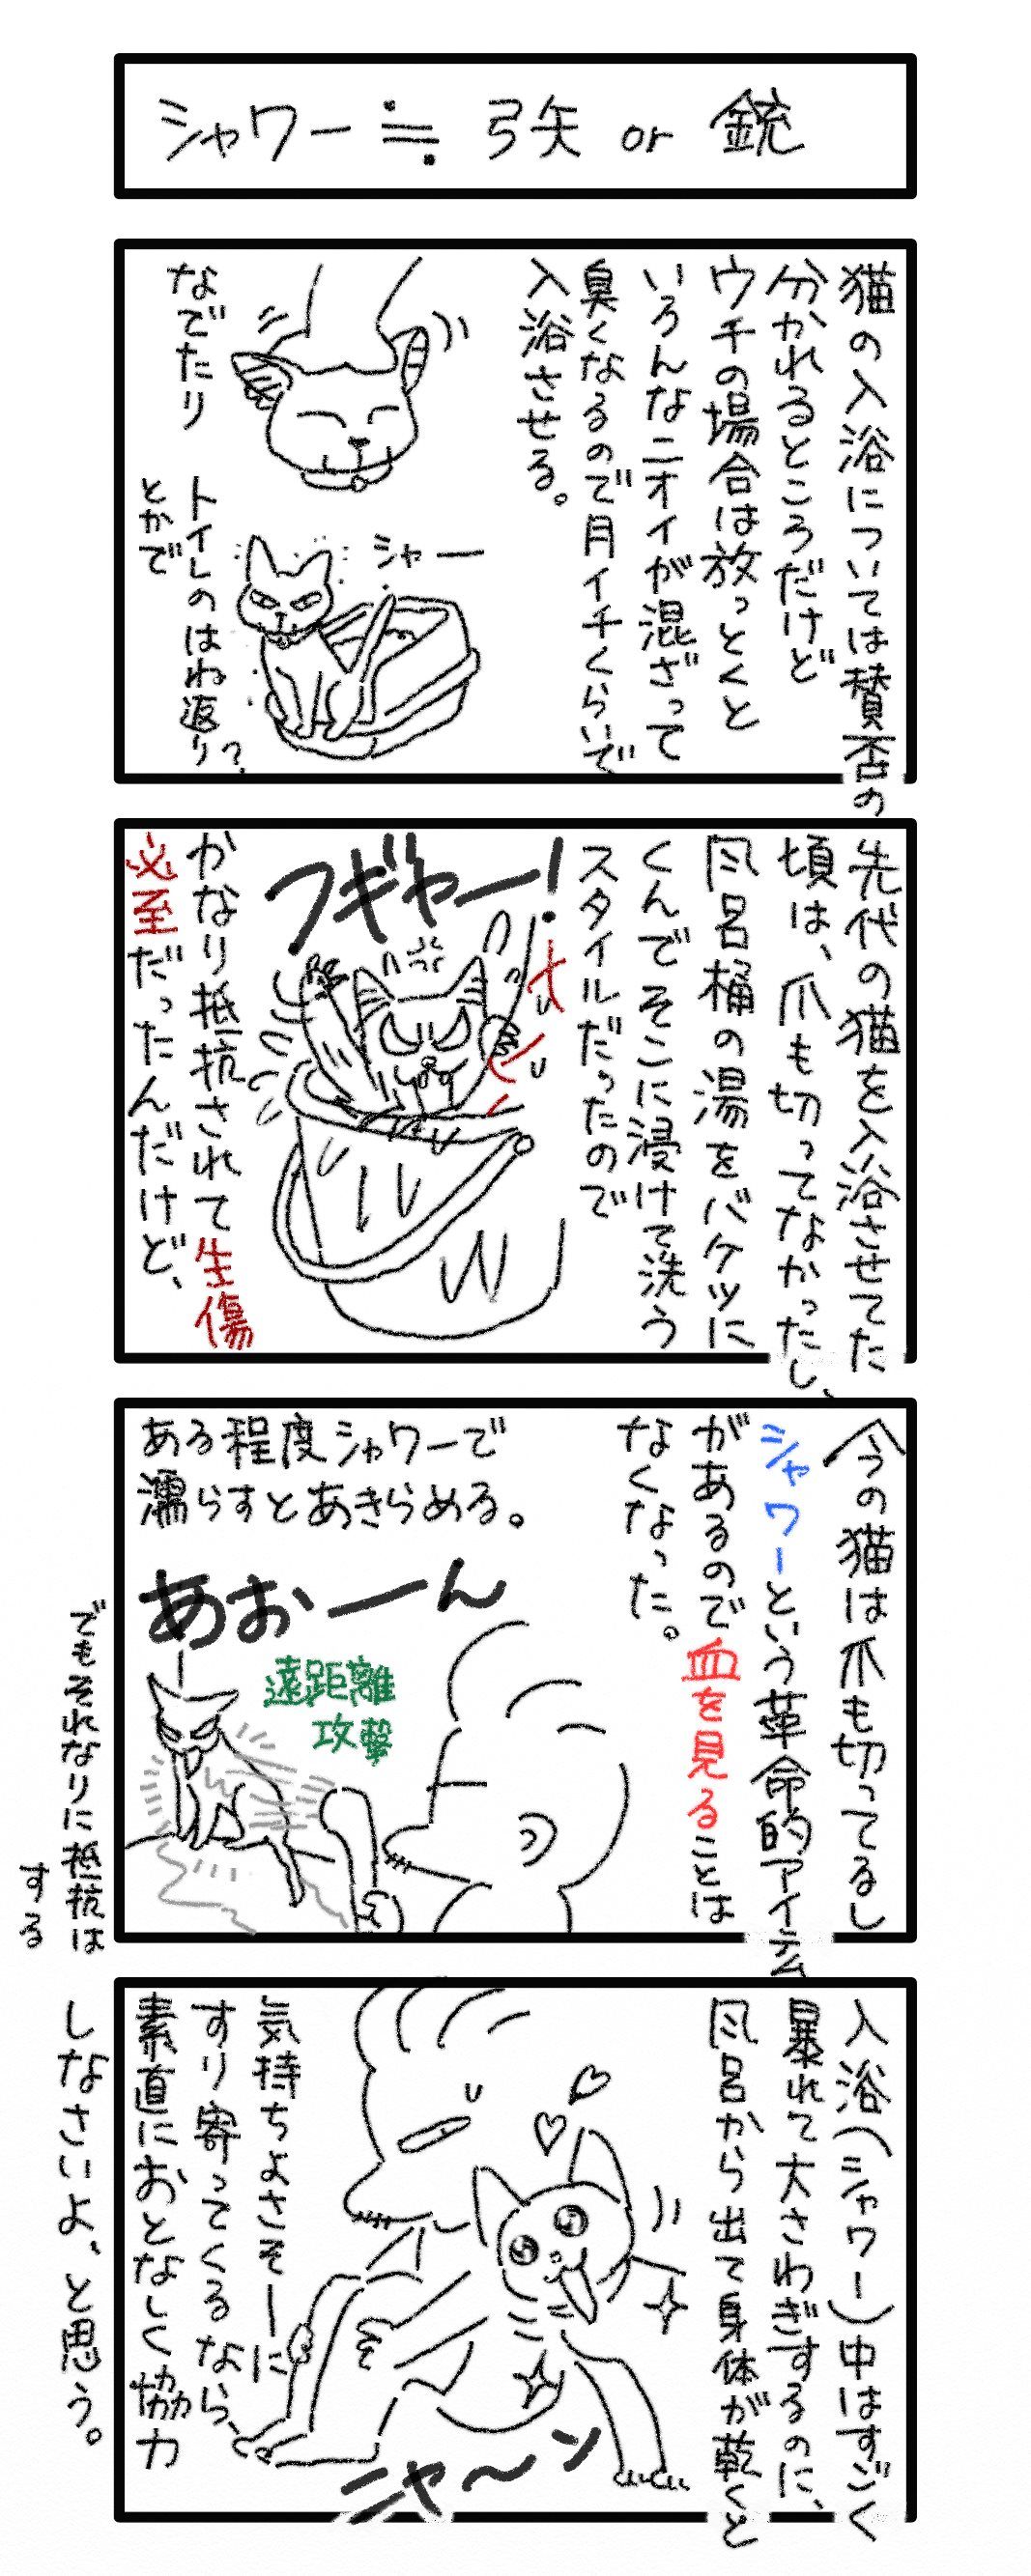 シャワー≒弓矢 or 銃
猫の入浴については賛否の
分かれるところだけど
ウチの場合は放っとくと
いろんなニオイが混ざって
臭くなるので月イチくらいで
入浴させる。
なでたり
シャー
トイレのはね返り?
とかで
先代の猫を入浴させてた
頃は、爪も切ってなかったし、
風呂桶の湯をバケツに
くんでそこに浸けて洗う
スタイルだったので
フギャー!
かなり抵抗されて生傷
必至だったんだけど、
今の猫は爪も切ってるし
シャワーという革命的アイテム
があるので血を見ることは
なくなった。
ある程度シャワーで
濡らすとあきらめる。
あおーん
遠距離
攻撃
でもそれなりに抵抗は
する
入浴(シャワー)中はすごく
暴れて大さわぎするのに、
風呂から出て身体が乾くと
ニャ〜ン
気持ちよさそーに
すり寄ってくるなら、
素直におとなしく協力
しなさいよ、と思う。